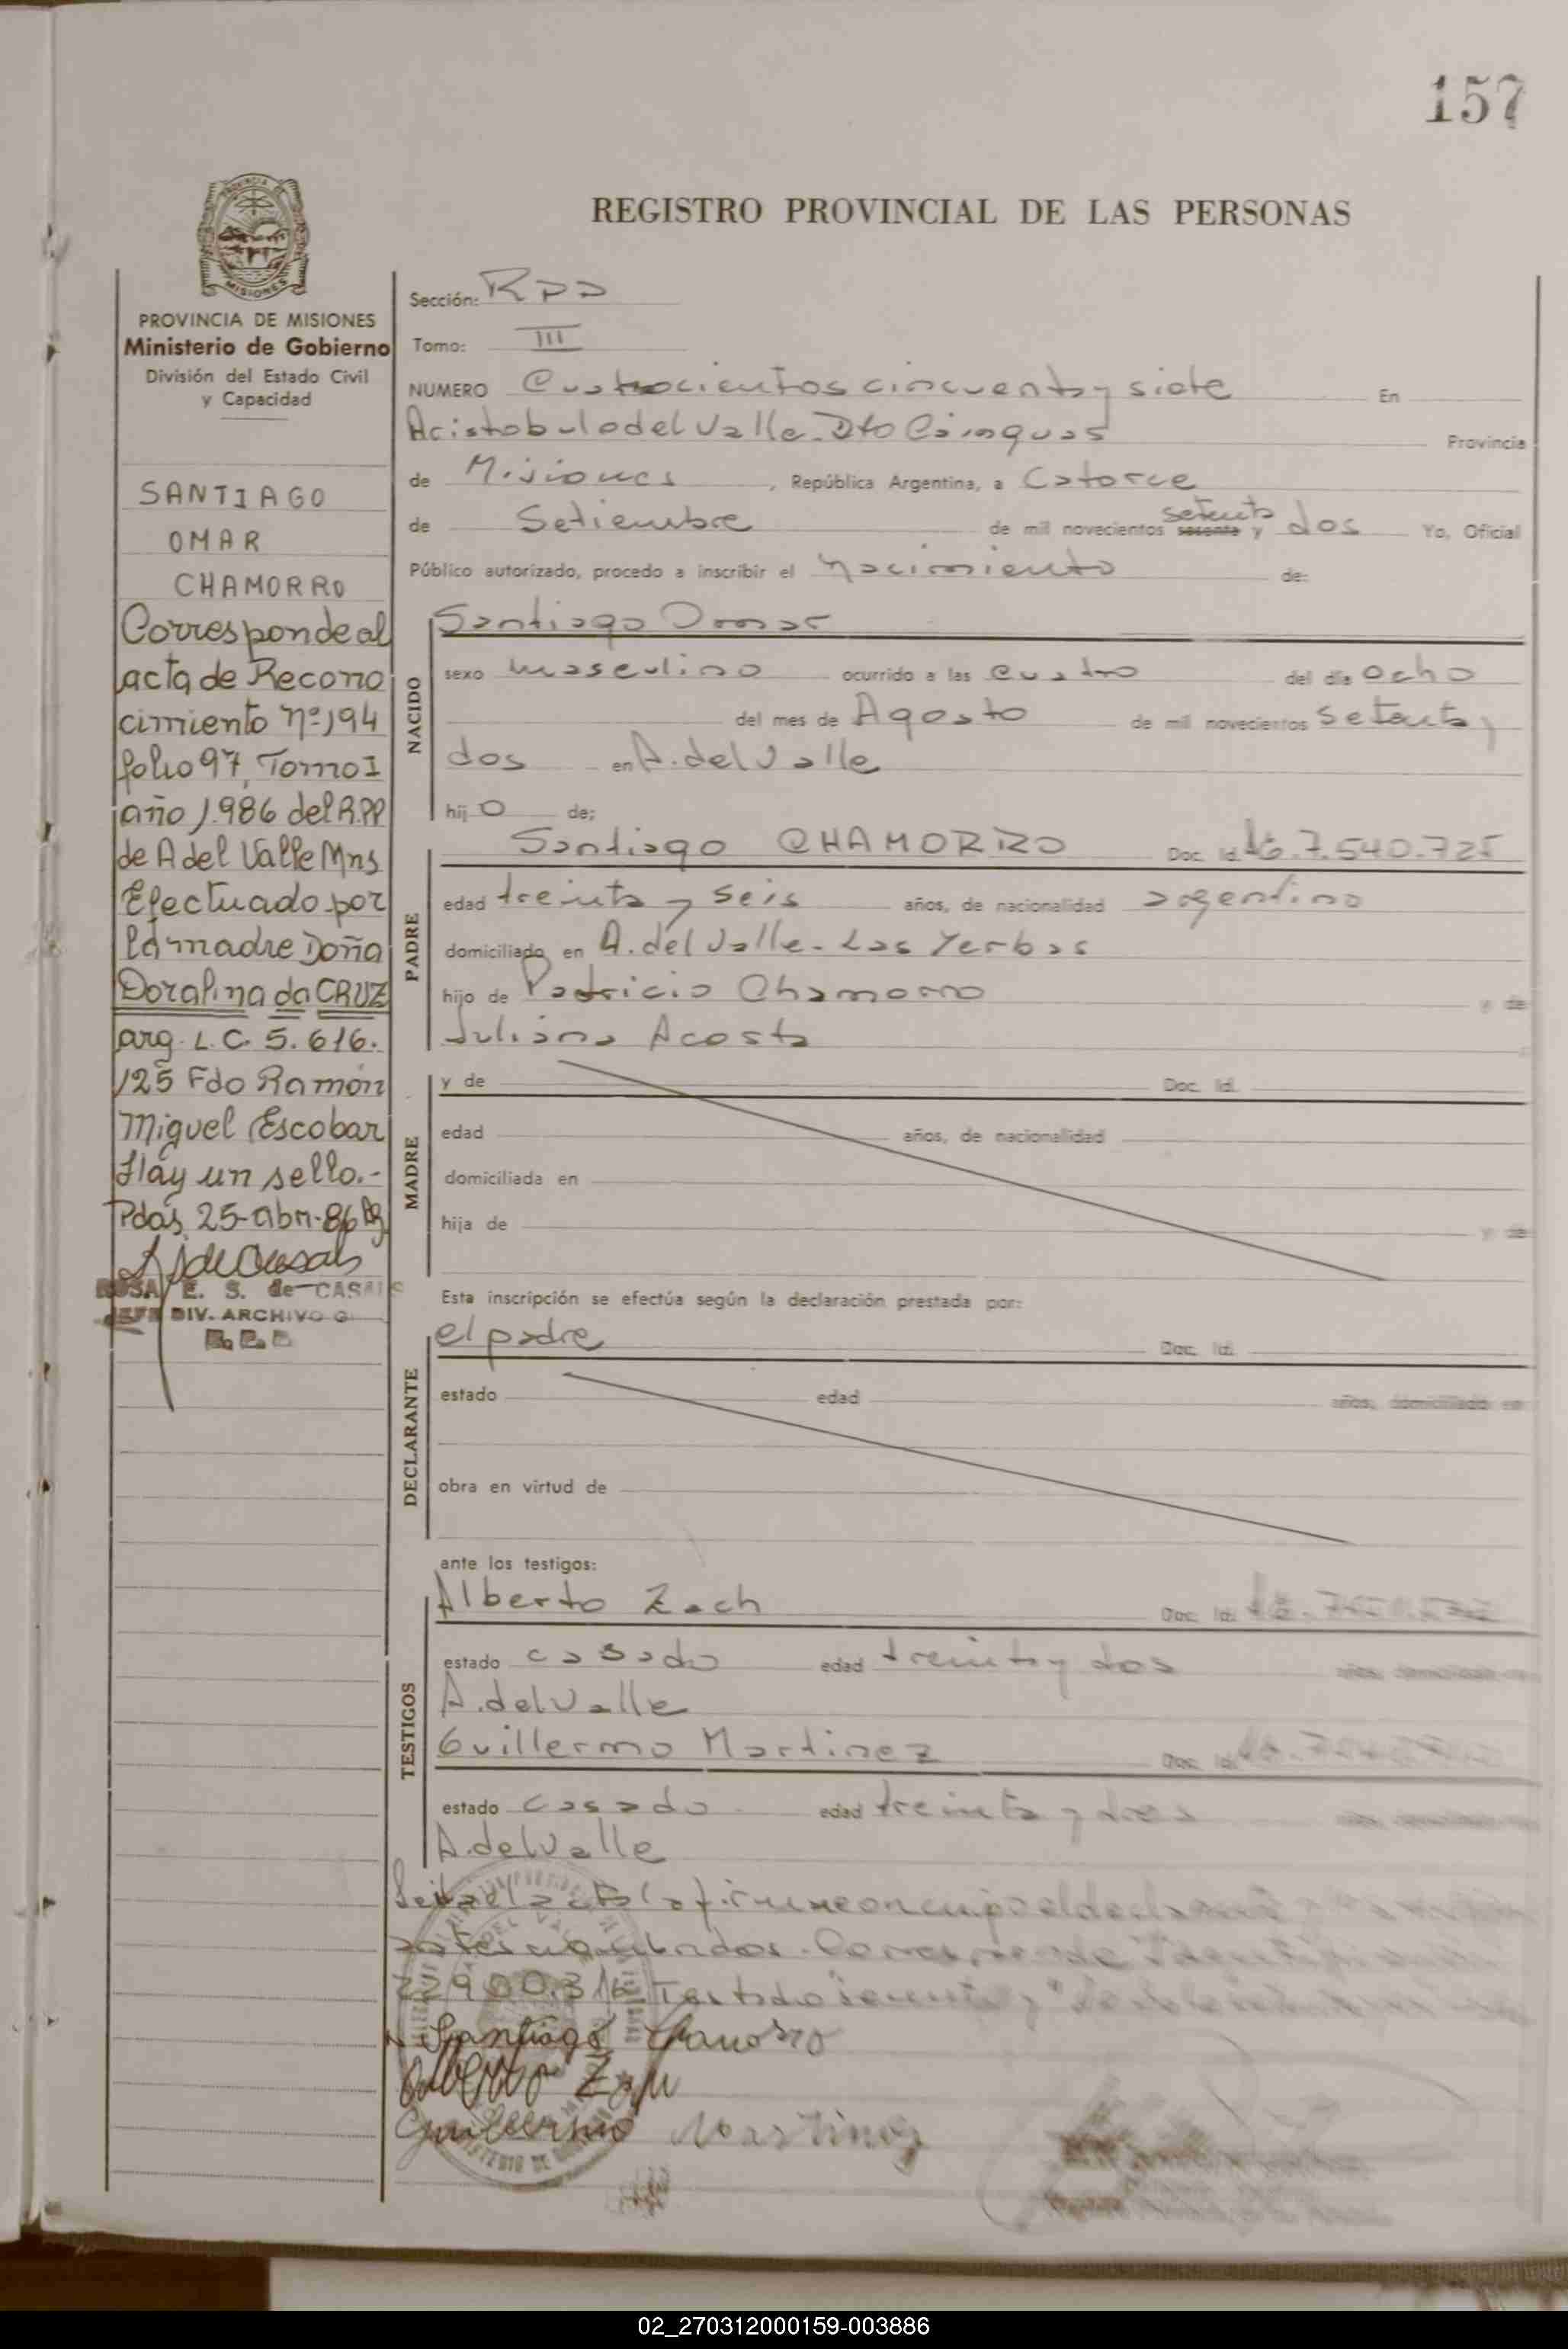 157
PROVINCIA DE
MISIONES
REGISTRO PROVINCIAL DE LAS PERSONAS
PROVINCIA DE MISIONES
Ministerio de Gobierno
División del Estado Civil
y Capacidad
SANTIAGO
OMAR
CHAMORRO
Corresponde al
acta de Recono
cimiento nº 194
folio 97, Tomo I
año 1.986 del R.PP
de A del Valle Mns
Efectuado por
la madre Doña
Doralina da CRUZ
arg. L. C. 5. 616.
125 Fdo Ramón
Miguel Escobar
Hay un sello.-
Pdas, 25-abr-86
ROSA E. S. de CASALS
JEFE DIV. ARCHIVO G
Sección:
Tomo: III
NUMERO Cuatrocientos cincuenta y siete En
Aristobulo del Valle. Dto Cainguas Provincia
de Misiones, República Argentina, a Catorce
de Setiembre de mil novecientos sesenta y setenta dos Yo, Oficial
Público autorizado, procedo a inscribir el nacimiento de:
NACIDO
Santiago Omar
sexo masculino ocurrido a las cuatro del día ocho
del mes de Agosto de mil novecientos setenta y
dos en A. del Valle
hijo de;
PADRE
Santiago CHAMORRO Doc. Id. 7.540.725
edad treinta y seis años, de nacionalidad argentino
domiciliado en A. del Valle - Las Yerbas
hijo de Patricio Chamorro y de
Juliana Acosta
MADRE
y de Doc. Id.
edad años, de nacionalidad
domiciliada en
hija de y de
Esta inscripción se efectúa según la declaración prestada por:
DECLARANTE
el padre Doc. Id.
estado edad años, domiciliado en
obra en virtud de
ante los testigos:
TESTIGOS
Alberto Zach Doc. Id.
estado casado edad treinta y dos
A. del Valle
Guillermo Martinez Doc. Id.
estado casado edad treinta y tres
A. del Valle
Leida el acta la firman conmigo el declarante y
antes nombrados. Corresponde
22900.316 Testado
Santiago Chamorro
Alberto Zach
Guillermo Martinez
02_270312000159-003886